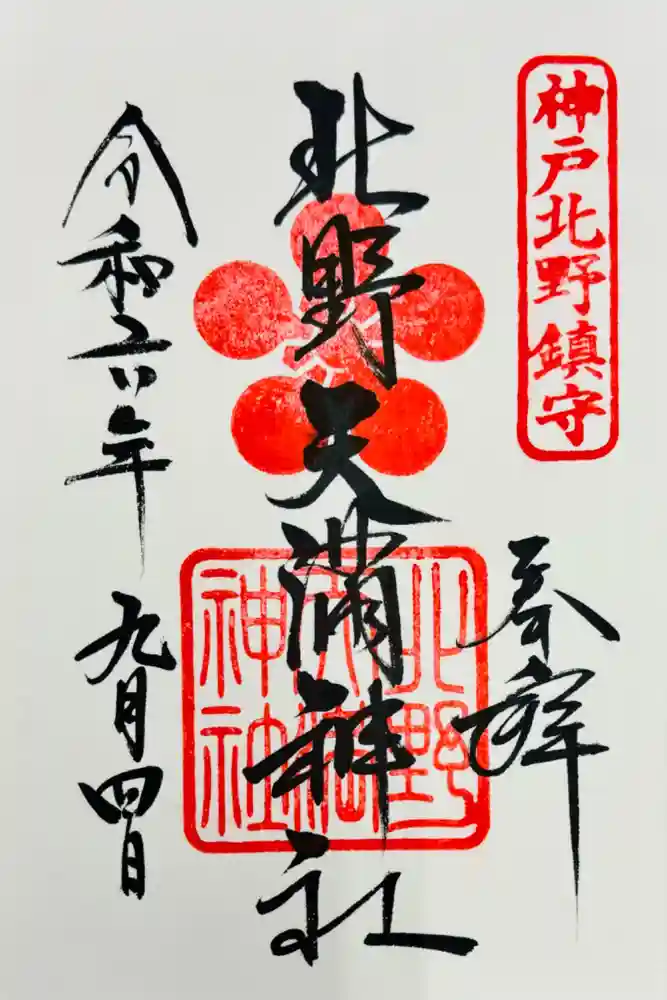 神戸北野鎮守
奉拝
北野天満神社
北野天満神社
令和六年 九月四日